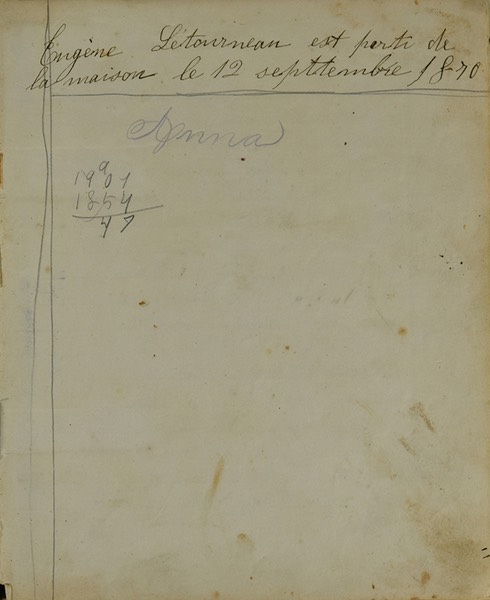 Eugène Létourneau est parti de
la maison le 12 septtembre 1870
Anna
9
1901
1854
47